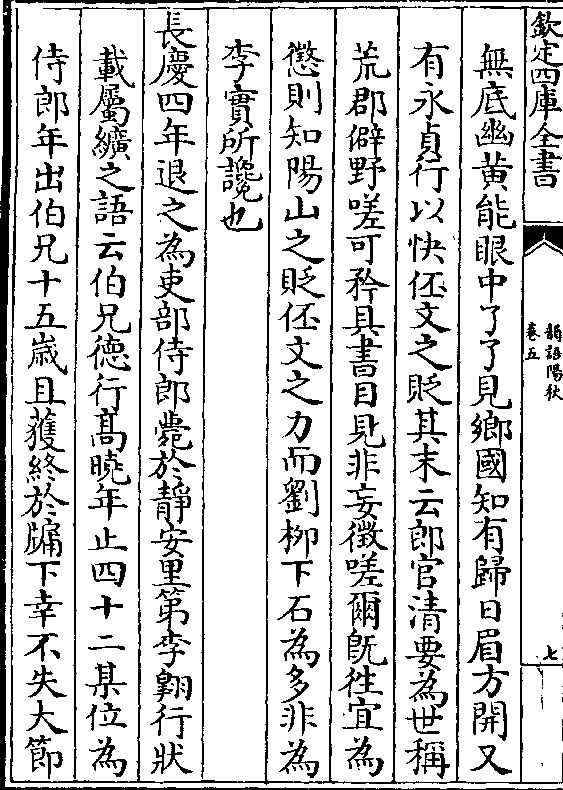 欽定四庫全書
韻語陽秋
卷五
七
無底幽黄能眼中了了見鄉國知有歸日眉方開又
有永貞行以快伾文之貶其末云郎官清要為世稱
荒郡僻野嗟可矜具書目見非妄徵嗟爾既徃宜為
懲則知陽山之貶伾文之力而劉栁下石為多非為
李實所讒也
長慶四年退之為吏部侍郎薨於靜安里第李翺行狀
載屬纊之語云伯兄德行髙曉年止四十二某位為
侍郎年出伯兄十五嵗且獲終於牖下幸不失大節